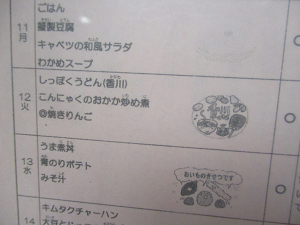 ごはん
11
月
擬製豆腐
キャベツの和風サラダ
わかめスープ
12
火
しっぽくうどん(香川)
こんにゃくのおかか炒め煮
◎焼きりんご
13
水
うま煮丼
青のりポテト
みそ汁
おいものきせつです
14
キムタクチャーハン